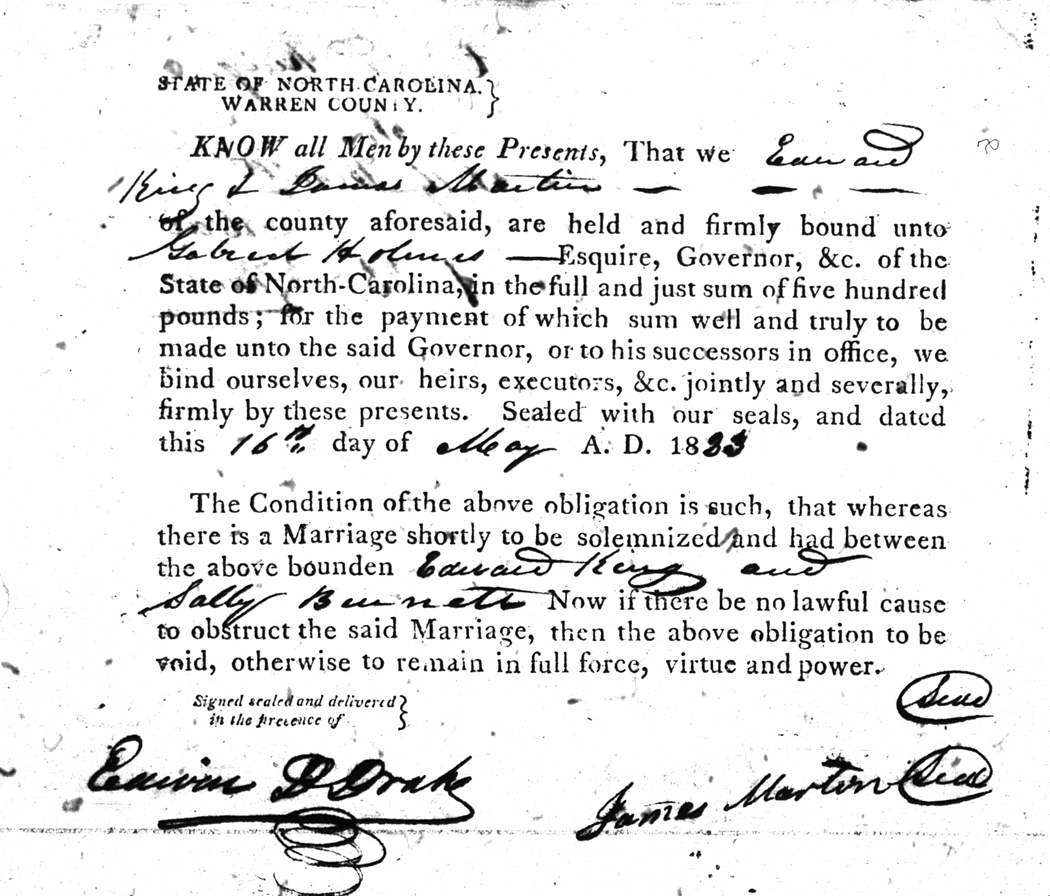 STATE OF NORTH-CAROLINA,
WARREN COUNTY.
KNOW all Men by these Presents, That we Edward
King & James Martin
of the county aforesaid, are held and firmly bound unto
Gabriel Holmes Esquire, Governor, &c. of the
State of North-Carolina, in the full and just sum of five hundred
pounds; for the payment of which sum well and truly to be
made unto the said Governor, or to his successors in office, we
bind ourselves, our heirs, executors, &c. jointly and severally,
firmly by these presents. Sealed with our seals, and dated
this 16th day of May A. D. 1823
The Condition of the above obligation is such, that whereas
there is a Marriage shortly to be solemnized and had between
the above bounden Edward King and
Sally Bennett Now if there be no lawful cause
to obstruct the said Marriage, then the above obligation to be
void, otherwise to remain in full force, virtue and power.
(Seal)
Signed sealed and delivered
in the presence of
Edwin D Drake
James Martin (Seal)